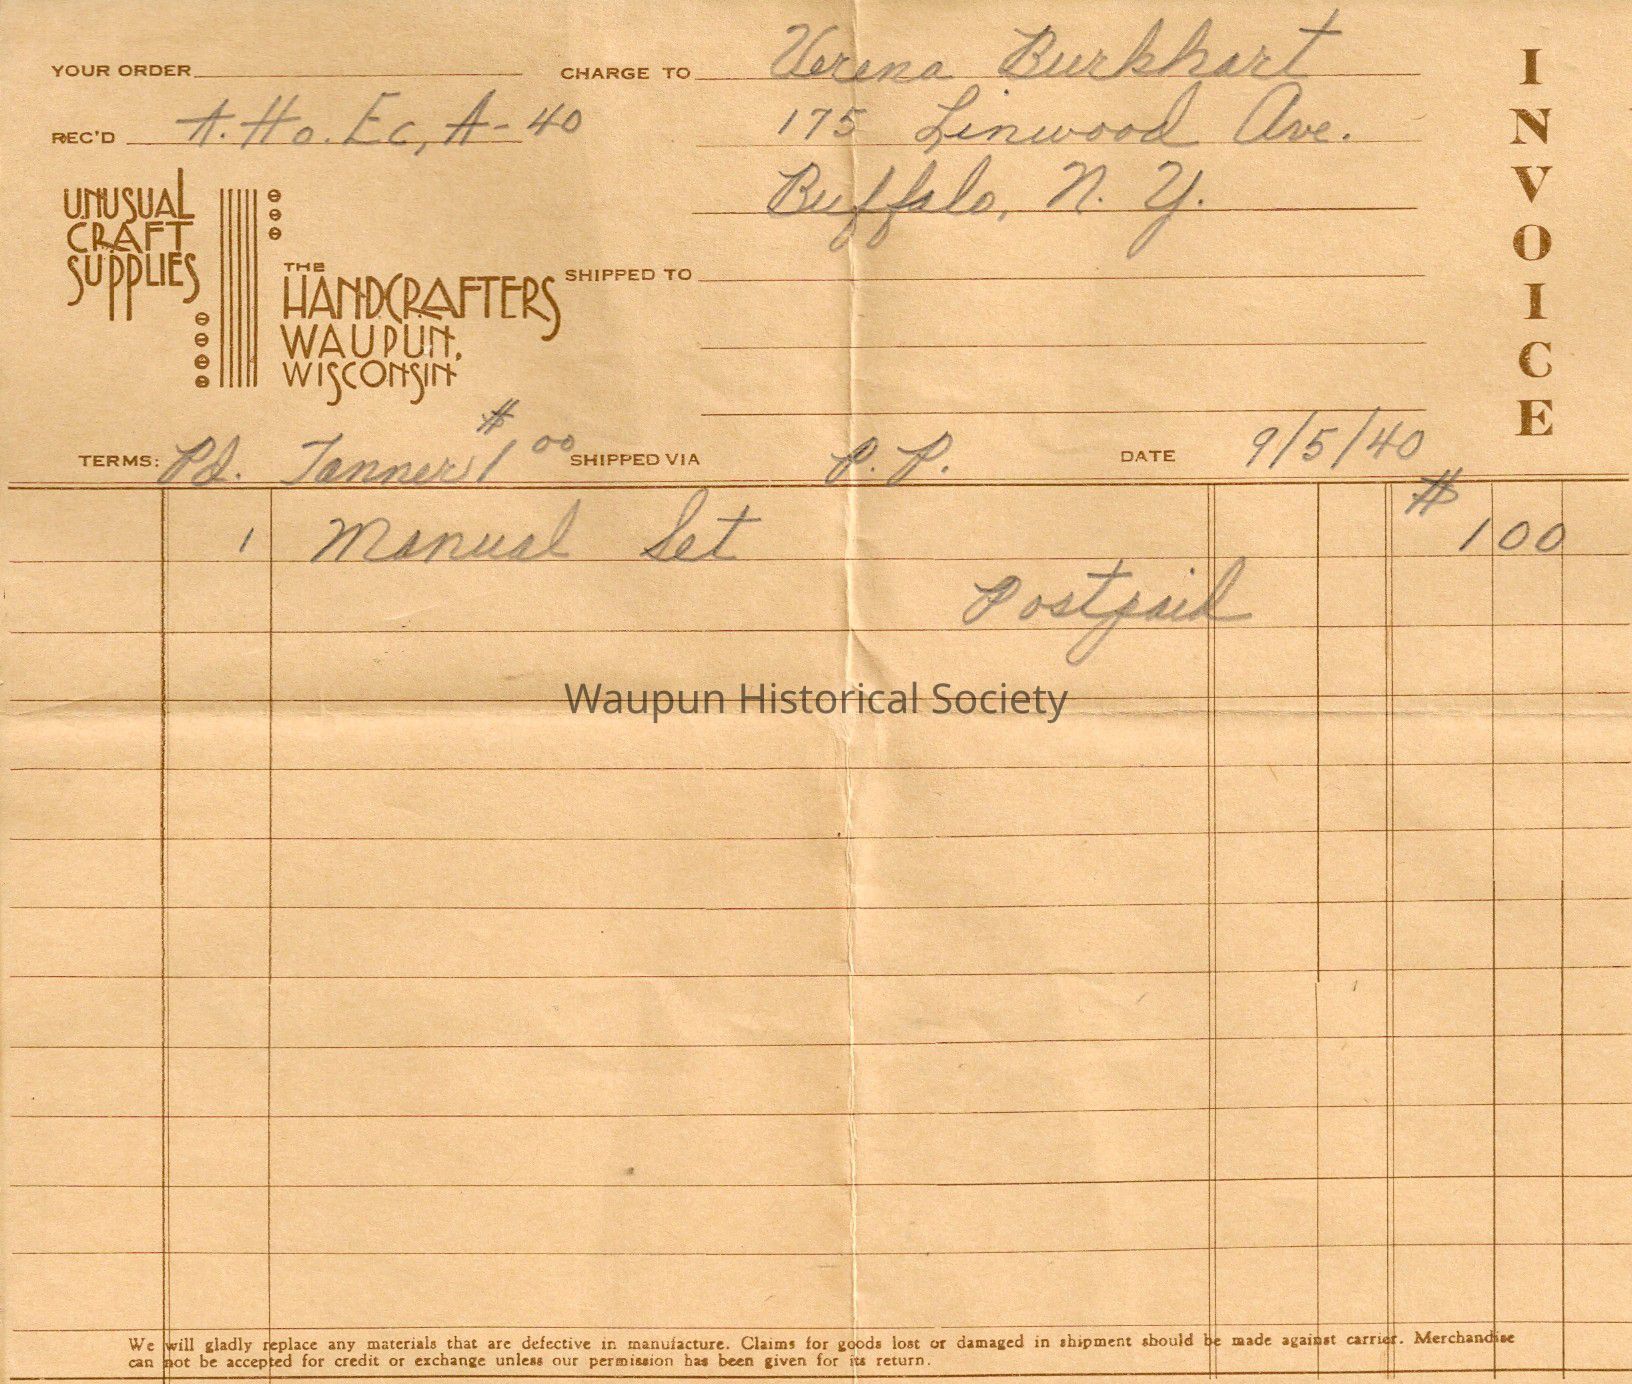 YOUR ORDER
CHARGE TO Verena Burkhart
REC'D A. Ho. Ec, A-40
175 Linwood Ave.
Buffalo, N. Y.
INVOICE
UNUSUAL
CRAFT
SUPPLIES
THE
HANDCRAFTERS
WAUPUN,
WISCONSIN
SHIPPED TO
TERMS: Pd. Tanner $1 00 SHIPPED VIA P. P. DATE 9/5/40
1 Manual Set $ 1 00
Postpaid
Waupun Historical Society
We will gladly replace any materials that are defective in manufacture. Claims for goods lost or damaged in shipment should be made against carrier. Merchandise
can not be accepted for credit or exchange unless our permission has been given for its return.